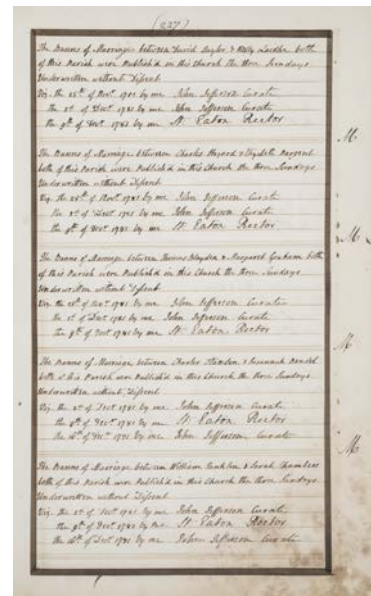 (227)
The Banns of Marriage between David Taylor & Molly both
of this Parish were Publish'd in this Church the three Sundays
Underwritten without Dissent
Viz. the 25th of Novr. 1781 by me John Jefferson Curate
the 2d of Decr 1781 by me John Jefferson Curate
the 9th of Decr 1781 by me St. Eaton Rector
M
The Banns of Marriage between Charles & Elizabeth Sargent
both of this Parish were Publish'd in this Church the three Sundays
Underwritten without Dissent
Viz. the 25th of Novr 1781 by me John Jefferson Curate
the 2d of Decr 1781 by me John Jefferson Curate
the 9th of Decr 1781 by me St. Eaton Rector
M
The Banns of Marriage between Thomas & Margaret Graham both
of this Parish were Publish'd in this Church the three Sundays
Underwritten without Dissent
Viz. the 25th of Novr 1781 by me John Jefferson Curate
the 2d of Decr 1781 by me John Jefferson Curate
the 9th of Decr 1781 by me St. Eaton Rector
M
The Banns of Marriage between Charles & Susannah
both of this Parish were Publish'd in this Church the three Sundays
Underwritten without Dissent
Viz. the 2d of Decr 1781 by me John Jefferson Curate
the 9th of Decr 1781 by me St. Eaton Rector
the 16th of Decr 1781 by me John Jefferson Curate
M
The Banns of Marriage between William & Sarah Chambers
both of this Parish were Publish'd in this Church the three Sundays
Underwritten without Dissent
Viz. the 2d of Decr 1781 by me John Jefferson Curate
the 9th of Decr 1781 by me St. Eaton Rector
the 16th of Decr 1781 by me John Jefferson Curate